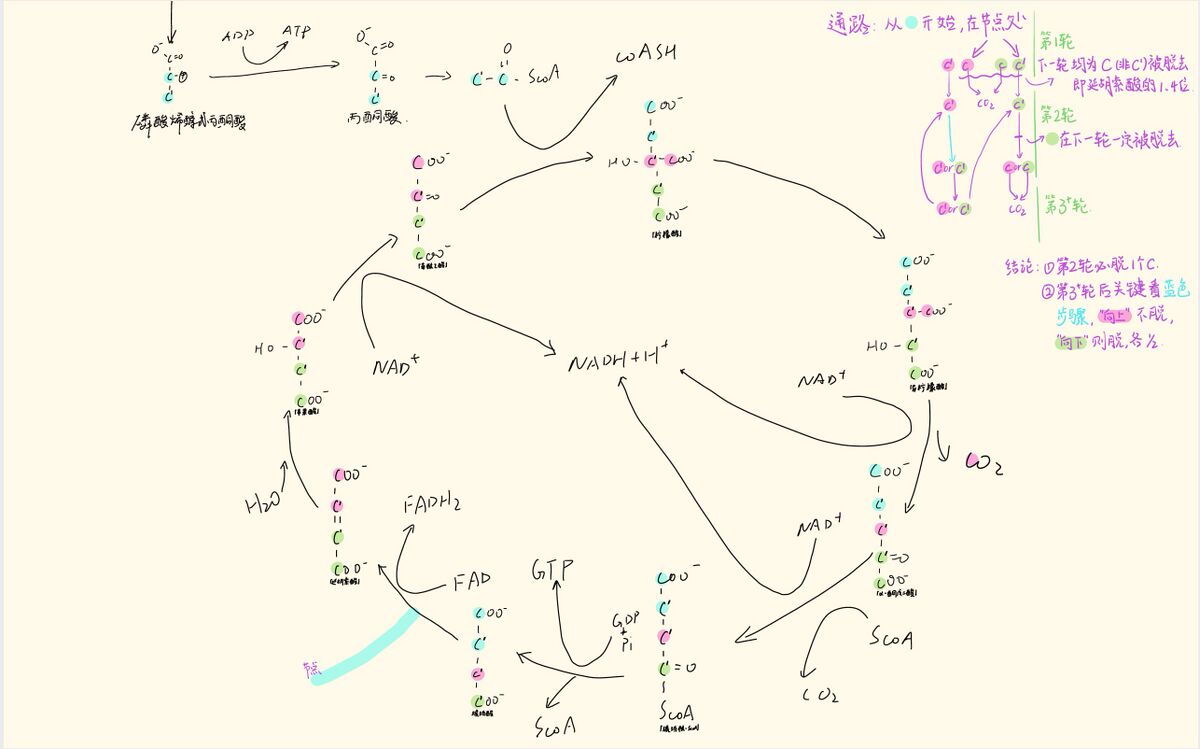 O⁻
C=O
C-Ⓟ
C'
磷酸烯醇式丙酮酸
ADP
ATP
O⁻
C=O
C=O
C'
丙酮酸
O
C'-C-ScoA
coASH
COO⁻
C'
HO-C'-COO⁻
C'
COO⁻
[柠檬酸]
COO⁻
C'=O
C'
COO⁻
[草酰乙酸]
COO⁻
C'
C'-COO⁻
HO-C'
COO⁻
[异柠檬酸]
NAD⁺
CO₂
COO⁻
C'
C'
C'=O
COO⁻
[α-酮戊二酸]
NAD⁺
ScoA
CO₂
COO⁻
C'
C'
C'=O
ScoA
[琥珀酰-ScoA]
GTP
GDP
+
Pi
ScoA
COO⁻
C'
C'
COO⁻
琥珀酸
FAD
FADH₂
节点
COO⁻
C'
C'
COO⁻
[延胡索酸]
H₂O
COO⁻
HO-C'
C'
COO⁻
[苹果酸]
NAD⁺
NADH+H⁺
通路:从开始,在节点处
第1轮
C' C C C'
下一轮均为C(非C')被脱去
即延胡索酸的1.4位.
CO₂
第2轮
C' C'
在下一轮一定被脱去
C'orC' CorC
第3⁺轮
C'orC' CO₂
结论:①第2轮必脱1个C.
②第3⁺轮后关键看蓝色
步骤,"向上"不脱,
"向下"则脱,各½.